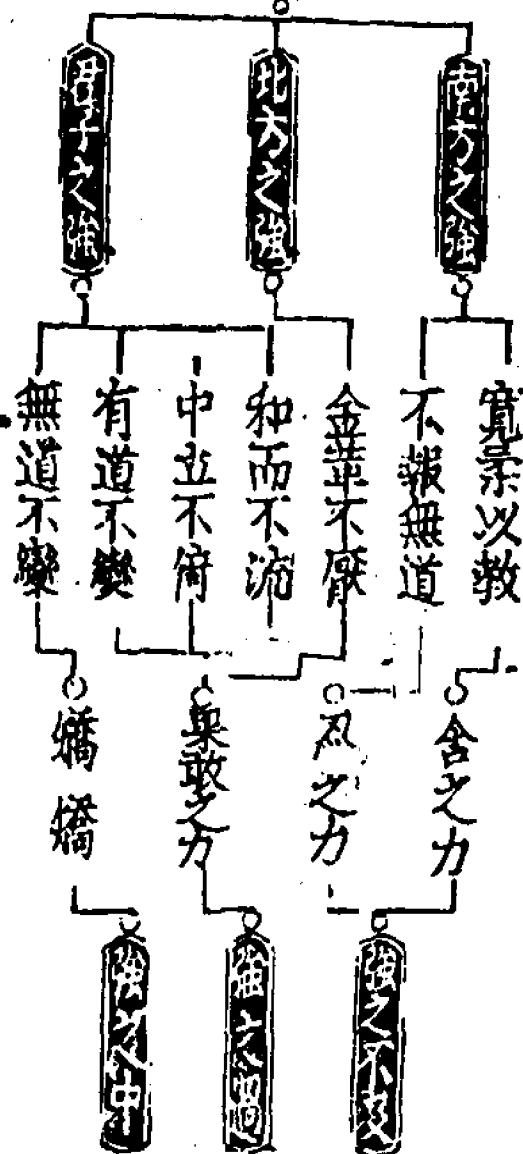 南方之強
北方之強
君子之強
寬柔以教
不報無道
金革不厭
和而不流
中立不倚
有道不變
無道不變
含之力
忍之力
果敢之力
矯矯
強之不及
強之過
強之中